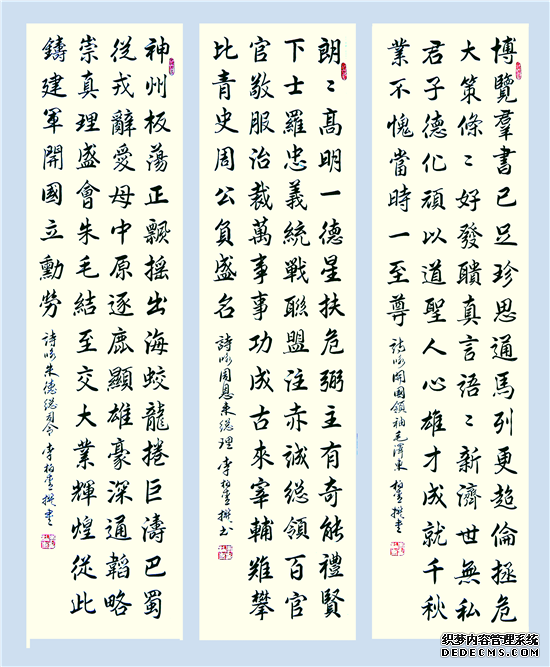 博覽羣書已足珍思通馬列更超倫拯危
大策條〻好發聵真言語〻新濟世無私
君子德化頑以道聖人心雄才成就千秋
業不愧當時一至尊 詩咏開國領袖毛澤東 柏撰書
朗〻高明一德星扶危弼主有奇能禮賢
下士羅忠義統戰聯盟注赤誠總領百官
官敬服治裁萬事事功成古來宰輔難攀
比青史周公負盛名 詩咏周恩来總理 李柏撰书
神州板蕩正飄摇出海蛟龍捲巨濤巴蜀
從戎辭愛母中原逐鹿顯雄豪深通韜略
崇真理盛會朱毛結至交大業輝煌從此
鑄建軍開國立勳勞 詩咏朱德總司令 李柏撰書
织梦内容管理系统
DEDECMS.COM